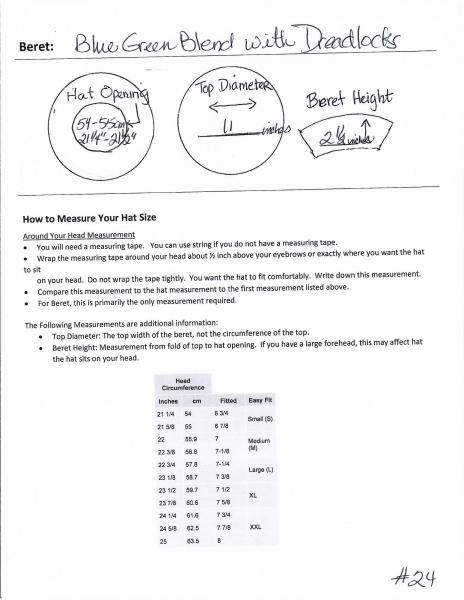 Beret: Blue Green Blend with Dreadlocks
Hat Opening
54-55cm
21¼"-21½"
Top Diameter
11 inches
Beret Height
2½ inches
How to Measure Your Hat Size
Around Your Head Measurement
• You will need a measuring tape. You can use string if you do not have a measuring tape.
• Wrap the measuring tape around your head about ½ inch above your eyebrows or exactly where you want the hat
to sit
on your head. Do not wrap the tape tightly. You want the hat to fit comfortably. Write down this measurement.
• Compare this measurement to the hat measurement to the first measurement listed above.
• For Beret, this is primarily the only measurement required.
The Following Measurements are additional information:
• Top Diameter: The top width of the beret, not the circumference of the top.
• Beret Height: Measurement from fold of top to hat opening. If you have a large forehead, this may affect hat
the hat sits on your head.
Head
Circumference
Inches cm Fitted Easy Fit
21 1/4 54 6 3/4
Small (S)
21 5/8 55 6 7/8
22 55.9 7
Medium
(M)
22 3/8 56.8 7-1/8
22 3/4 57.8 7-1/4
Large (L)
23 1/8 58.7 7 3/8
23 1/2 59.7 7 1/2
XL
23 7/8 60.6 7 5/8
24 1/4 61.6 7 3/4
24 5/8 62.5 7 7/8 XXL
25 63.5 8
#24